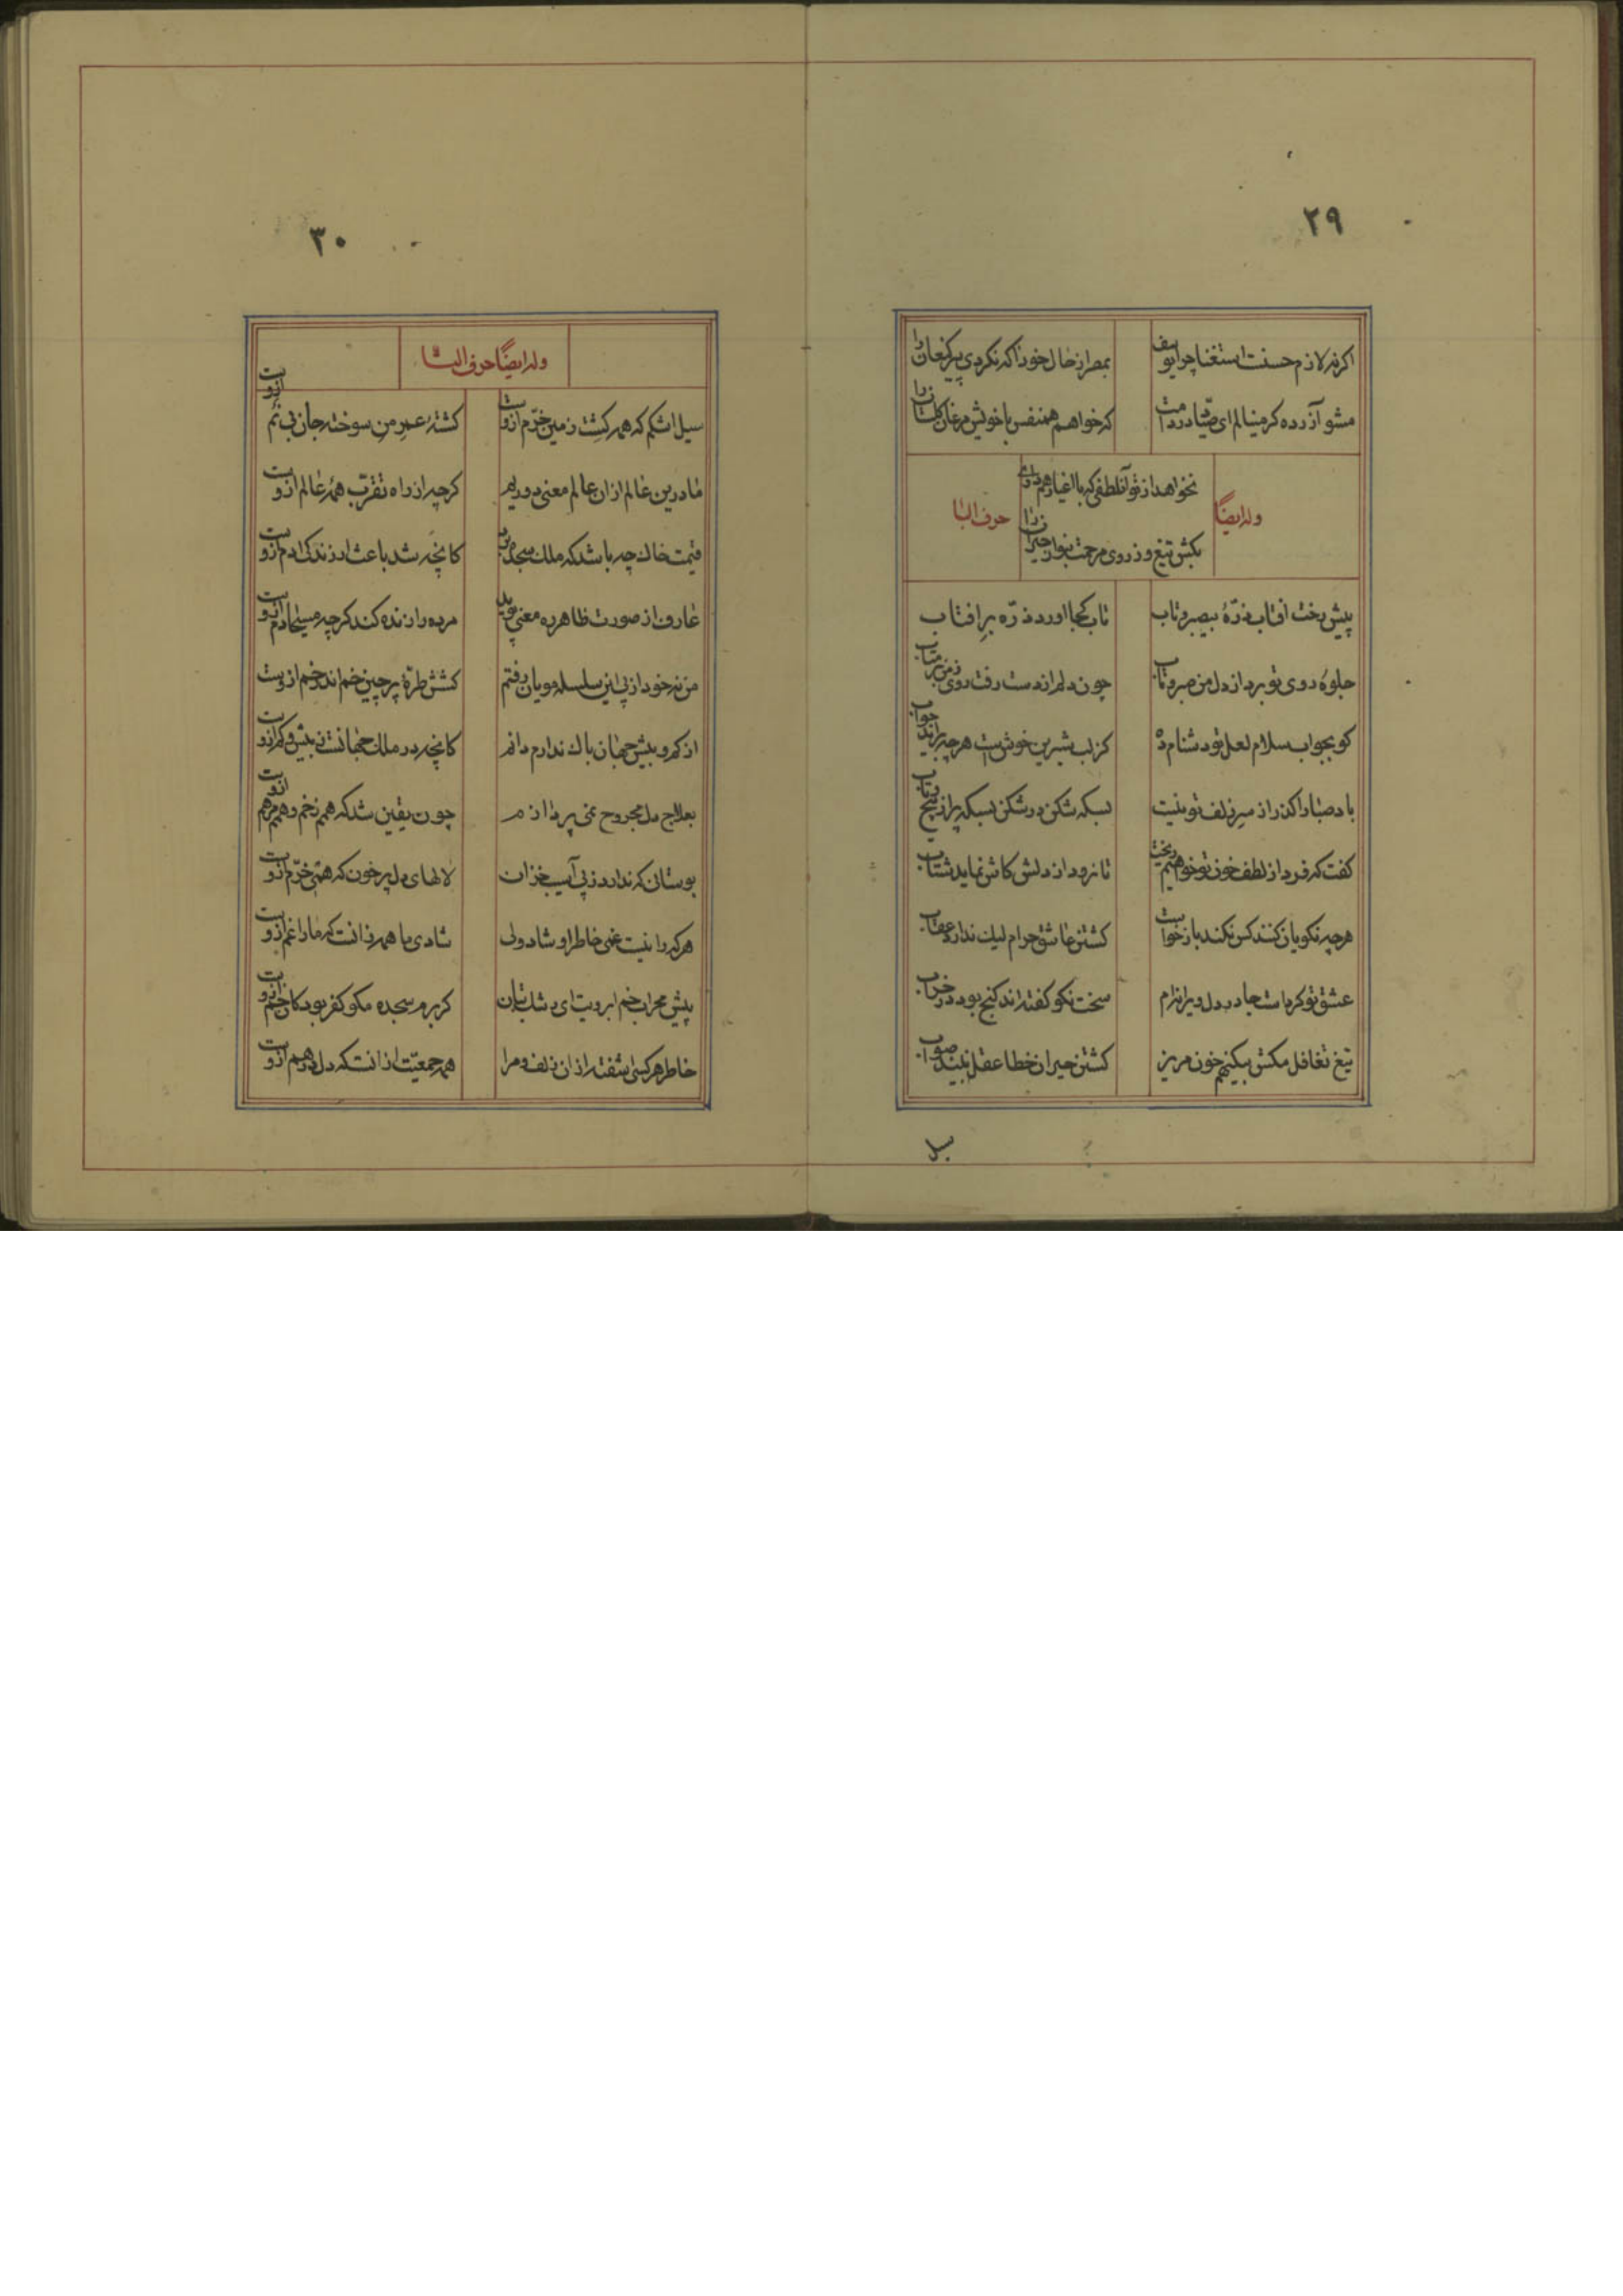 ۲۹
اکر نه لازم حسنت استغنا چرا یوسف
بمصر از حال خود اکه نکردی پیر کنعان را
مشو آزرده کر مینالم ای صیاد در دامت
که خواهم همنفس با خویش مرغان کلستان را
وله ایضاً
نخواهد از تو آن لطفی که با اغیار هم داری
بکش تیغ و ز روی مرحمت بنواز حیران را
حرف البا
پیش رخت افتاب ذرّهٔ بیصبر و تاب
تاب کجا اورد ذرّه برِ افتاب
جلوهٔ روی تو برد از دل من صبر و تاب
چون دلم از دست رفت روی ز من بر متاب
کو بجواب سلام لعل تو دشنام ده
کز لب شیرین خوش است هر چه براید جواب
باد صبا را کذر از سر زلف تو نیست
بسکه شکن در شکن بسکه پر از پیچ و تاب
کفت که فردا ز لطف خون تو خواهیم ریخت
تا نرود از دلش کاش نماید شتاب
هر چه نکویان کنند کس نکند باز خواست
کشتن عاشق حرام لیک ندارد عقاب
عشق تو کر ماست جا در دل ویرانه‌ام
سخت نکو کفته‌اند کنج بود در خراب
تیغ تغافل مکش بیکنهم خون مریز
کشتن حیران خطا عقل نبیند صواب
سیل
۳۰
وله ایضاً حرف التا
سیل اشکم که همه کشت زمین خرّم ازوست
کشتهٔ عمر من سوخته جان بی نم ازوست
ما درین عالم ازان عالم معنی دوریم
کرچه از راه تقرّب همهٔ عالم ازوست
قیمت خاک چه باشد که ملک سجده برد
کانچه شد باعث ارزندکی ادم ازوست
عارف از صورت ظاهر ره معنی پوید
مرده را زنده کند کرچه مسیحا دم ازوست
من نه خود از پی این سلسله مویان رفتم
کشش طرهٔ پرچین خم اندر خم ازوست
از کم و بیش جهان باک ندارم دانم
کانچه در ملک جهانست ز بیش و کم ازوست
بعلاج دل مجروح نمی پردازم
چون یقین شد که هم زخم و همم مرهم ازوست
بوستان که ندارد ز پی آسیب خزان
لالهای دل پر خون که همی خرّم ازوست
هرکه را نیست غمی خاطر او شاد ولی
شادی ما همه زانست که ما را غم ازوست
پیش محراب خم ابرویت ای رشک بتان
کر برم سجده مکو کفر بود کان خم ازوست
خاطر هر کسی اشفته ازان زلف و مرا
همه جمعیّت ازانست که دل درهم ازوست